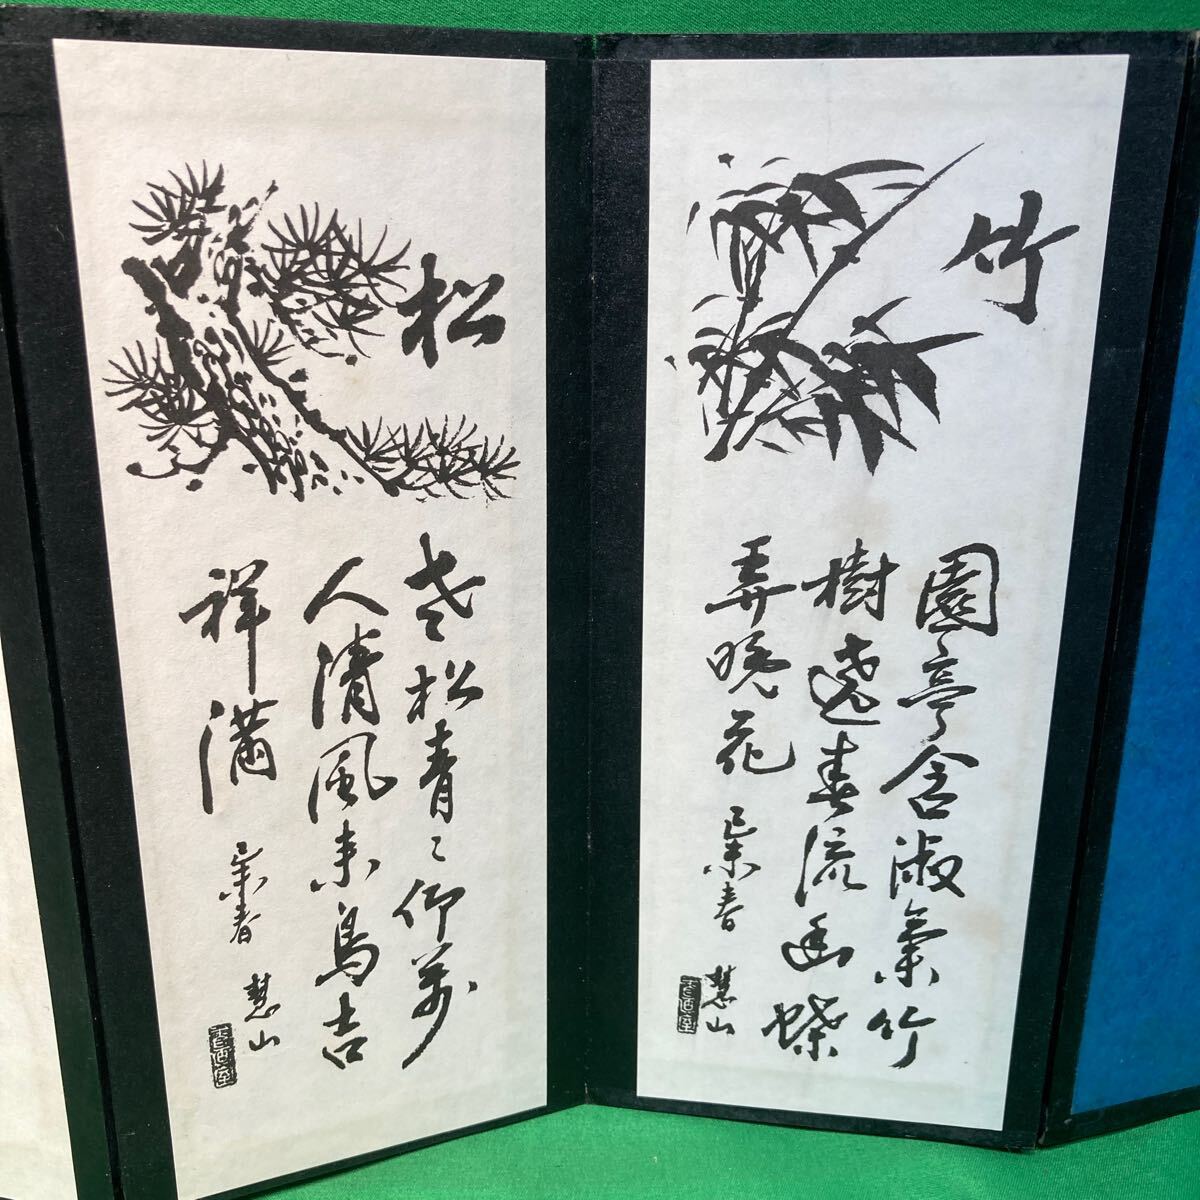 竹
園亭含淑氣竹
樹遶春流幽蝶
弄晩花
己未春 慧山
松
老松青々仰萬
人清風来鳥吉
祥満
己未春 慧山